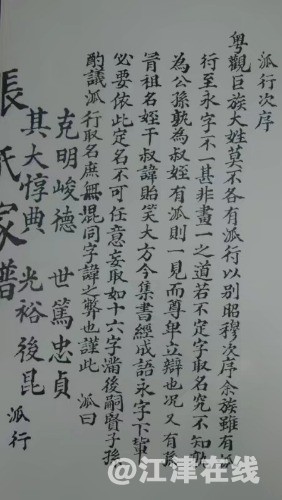 派行次序
粵觀巨族大姓莫不各有派行以別昭穆次序余族雖有派
行至永字不一甚非畫一之道若不定字取名究不知孰
為公孫孰為叔姪有派則一見而尊卑立辯也况又有
胥祖名姪干叔諱貽笑大方今集書經成語永字下輩
必要依此定名不可任意妄取如十六字滿後嗣賢子孫
酌議派行取名庶無混同字諱之弊也謹此 派曰
克明峻德 世篤忠貞
其大惇典 光裕後昆 派行
張氏家譜
@江津在线